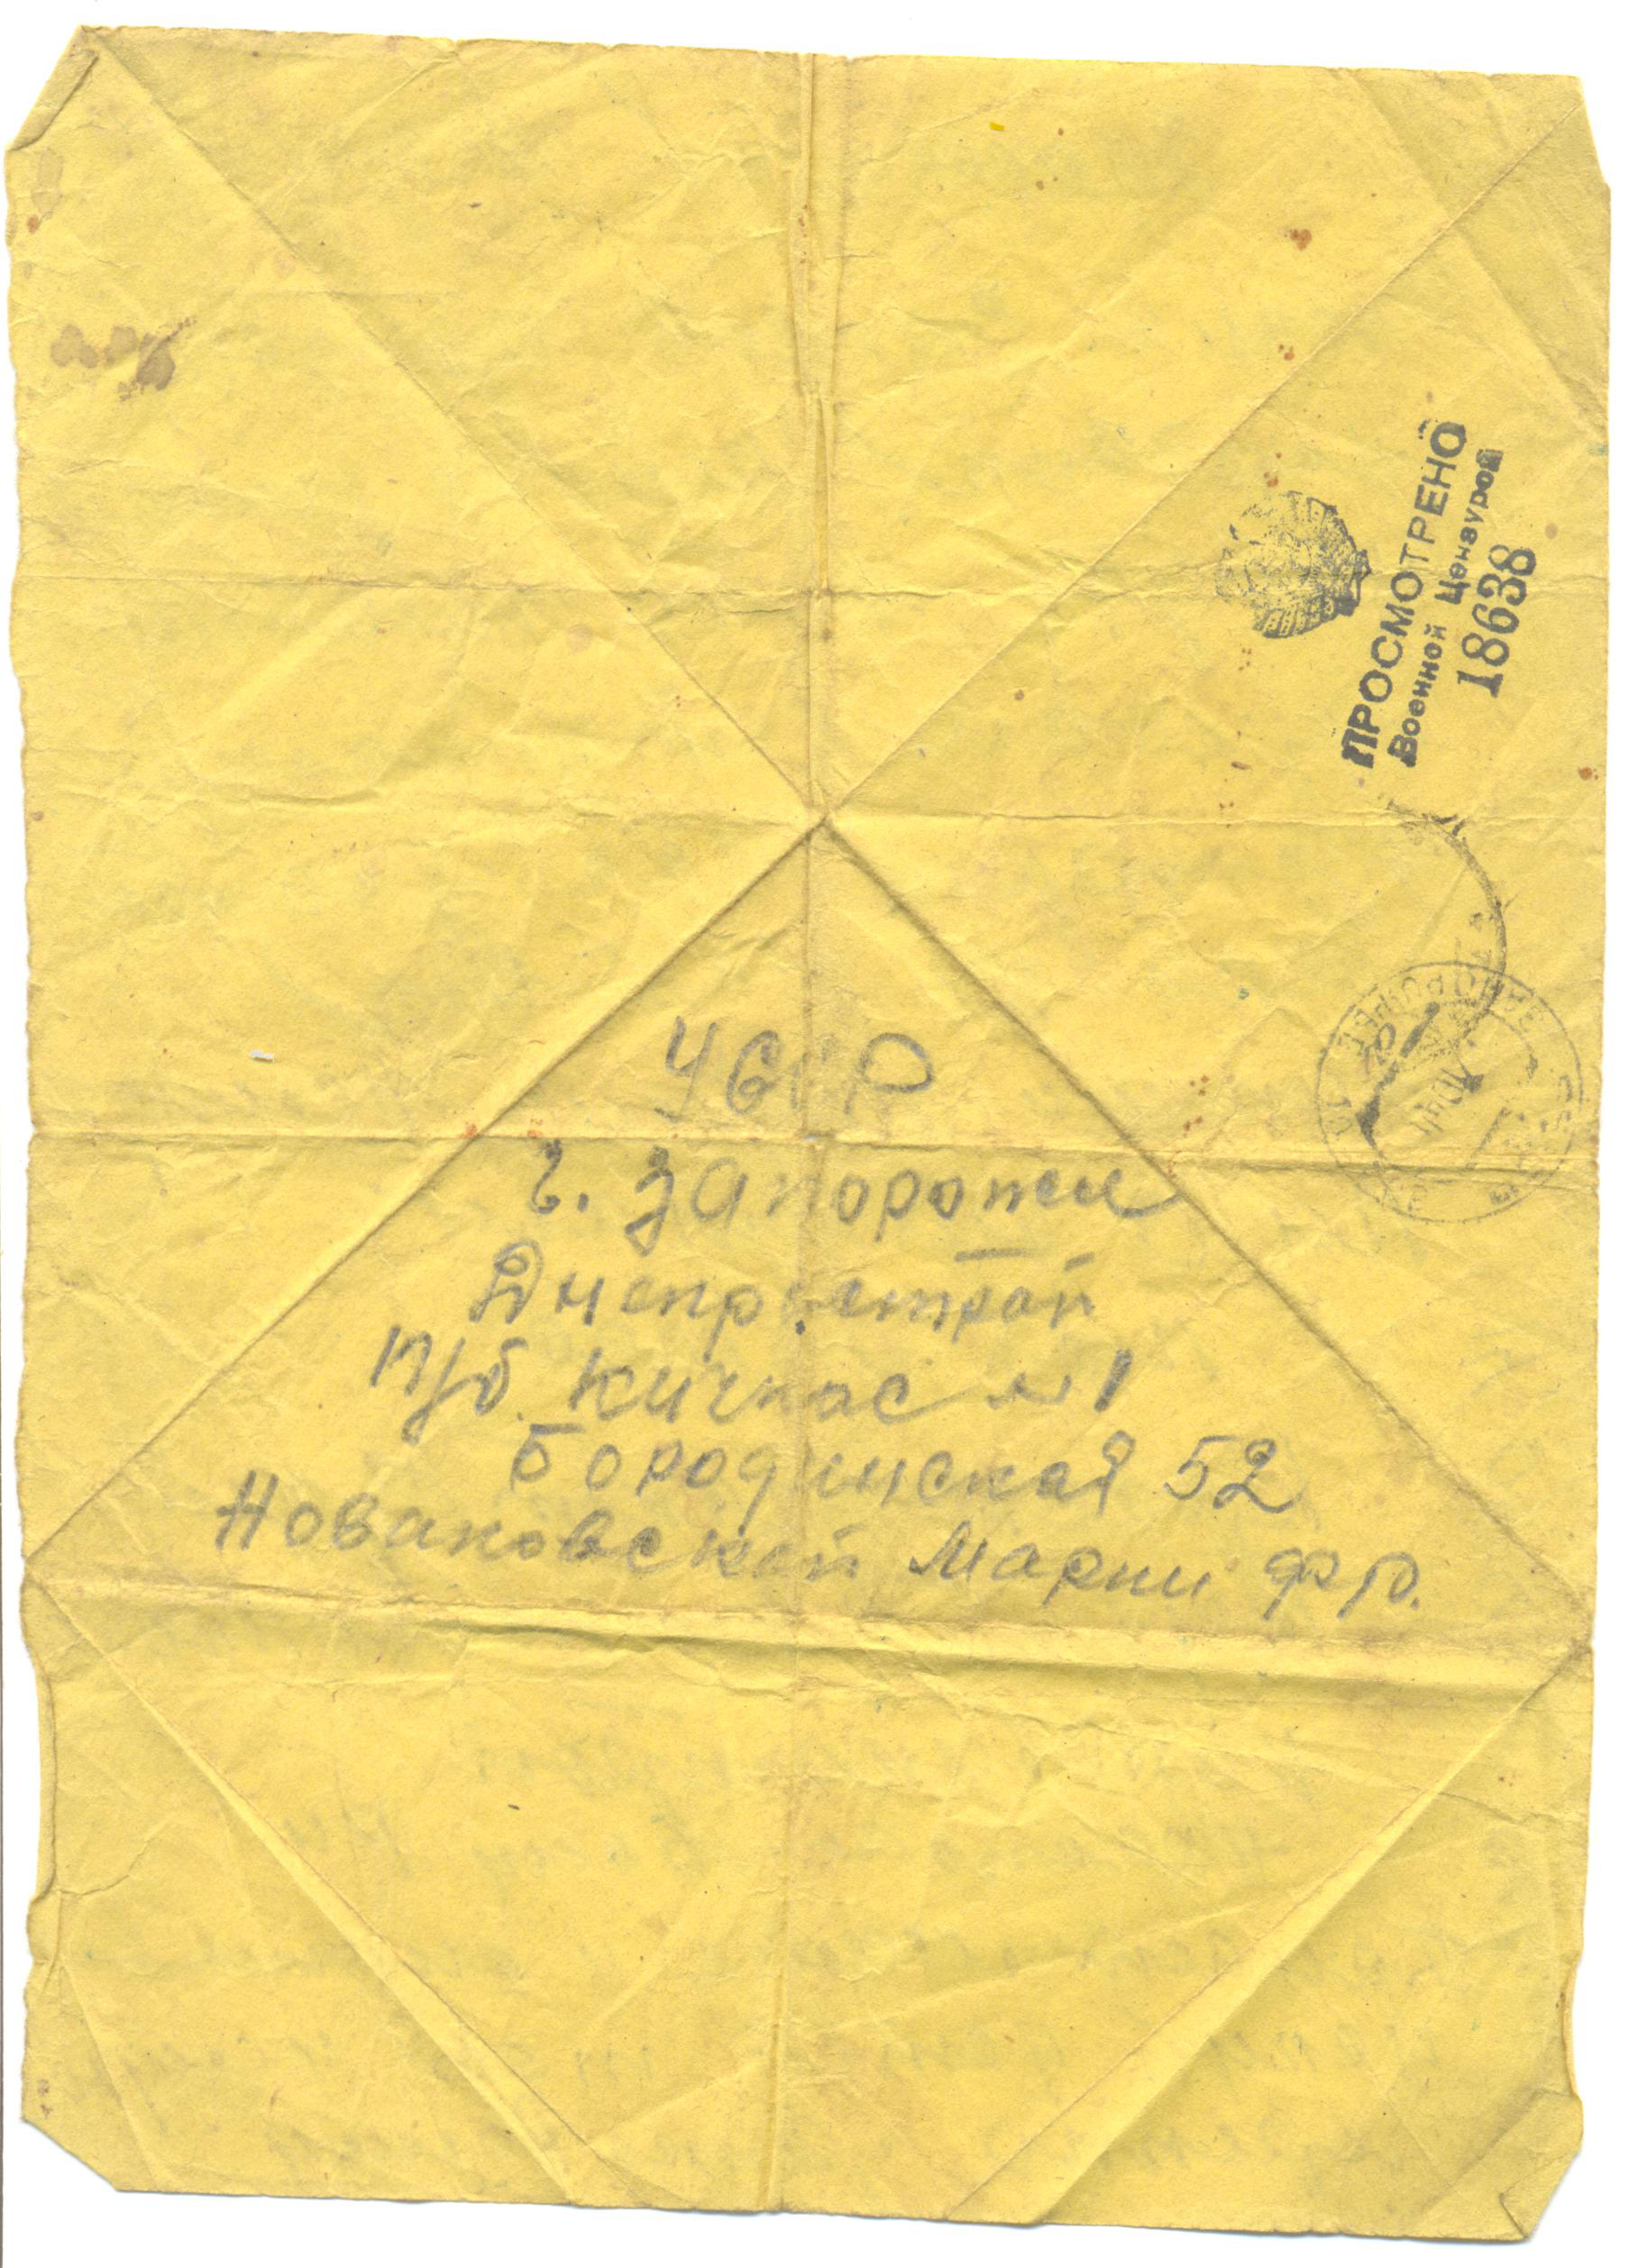 ПРОСМОТРЕНО
Военной Цензурой
18638
УССР
г. Запорожье
Днепрострой
П/б. Кичкас №1
Бородинская 52
Новаковской Марии Фр.